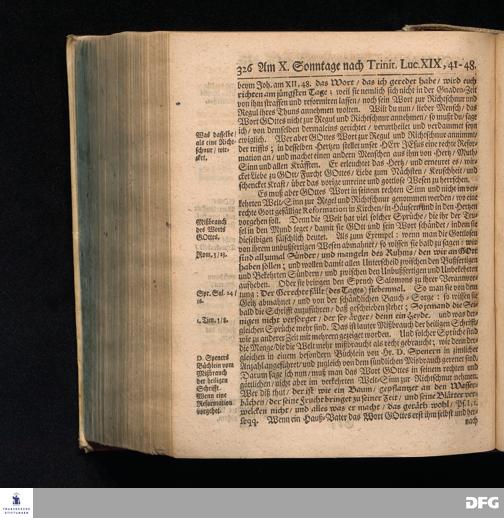 326 Am X. Sonntage nach Trinit. Luc. XIX, 41-48.
beym Joh. am XII, 48. das Wort / das ich geredet habe / wird euch
richten am jüngsten Tage; weil sie nemlich sich nicht in der Gnaden-Zeit
von ihm straffen und reformiren lassen / noch sein Wort zur Richtschnur und
Regul ihres Thuns annehmen wolten. Wilt du nun / lieber Mensch / das
Wort GOttes nicht zur Regul und Richtschnur annehmen / so must du sagt
ich / von demselben dermaleins gerichtet / verurtheilet und verdammet seyn
Was dasselbe /
als eine Richt-
schnur / wir-
cket.
ewiglich. Wer aber GOttes Wort zur Regul und Richtschnur annimmt /
der triffts; in desselben Hertzen stellet unser HErr JEsus eine rechte Refor-
mation an / und machet einen andern Menschen aus ihm von Hertz / Muth /
Sinn und allen Kräfften. Er erleuchtet das Hertz / und erneuret es / wir-
cket Liebe zu GOtt / Furcht GOttes / Liebe zum Nächsten / Keuschheit / und
schencket Krafft / über das vorige unreine und gottlose Wesen zu herrschen.
Es muß aber GOttes Wort in seinem rechten Sinn und nicht im ver-
kehrten Welt-Sinn zur Regul und Richtschnur genommen werden / wo eine
rechte Gott gefällige Reformation in Kirchen / in Häusern und in den Hertzen
Mißbrauch
des Worts
GOttes.
vorgehen soll. Denn die Welt hat viel solcher Sprüche / die ihr der Teu-
fel in den Mund leget / damit sie GOtt und sein Wort schändet / indem sie
dieselbigen fälschlich deutet. Als zum Exempel: wenn man die Gottlosen
von ihrem unbußfertigen Wesen abmahnet / so wissen sie bald zu sagen: wir
Rom. 3 / 23.
sind allzumal Sünder / und mangeln des Ruhms / den wir an GOtt
haben sollen; und wollen damit allen Unterscheid zwischen den Bußfertigen
und Bekehrten Sündern / und zwischen den Unbußfertigen und Unbekehrten
aufheben. Oder sie bringen den Spruch Salomons zu ihrer
Spr. Sal. 24 /
16.
tung: Der Gerechte fälle (des Tages) siebenmal. So man sie von dem
Geitz abmahnet / und von der schändlichen Bauch-Sorge: so wissen sie
bald die Schrifft anzuführen / daß geschrieben stehet: So jemand die Sei-
1. Tim. 5 / 8.
nigen nicht versorget / der sey ärger / denn ein Heyde. und was der-
gleichen Sprüche mehr sind. Das ist lauter Mißbrauch der heiligen Schrifft /
wie zu anderer Zeit mit mehrern gezeiget worden. Und solcher Sprüche sind
die Menge / die die Welt mehr mißbraucht als recht gebraucht; wie denn der-
D. Speners
Büchlein vom
Mißbrauch
der heiligen
Schrifft.
gleichen in einem besondern Büchlein von Hr. D. Spenern in zimlicher
Anzahl angeführet / und zugleich von dem sündlichen Mißbrauch gerettet sind.
Darum sage ich nun / muß man das Wort GOttes in seinem rechten und
göttlichen / nicht aber im verkehrten Welt-Sinn zur Richtschnur nehmen.
Wenn eine
Reformation
vorgehet.
Wer diß thut / der ist wie ein Baum / gepflantzet an den Wasser-
bächen / der seine Frucht bringet zu seiner Zeit / und seine Blätter ver-
welcken nicht / und alles was er macht / das geräth wohl / Ps. I, 1.
seqq. Wenn ein Hauß-Vater das Wort GOttes erst ihm selbst und her-
nach
DFG